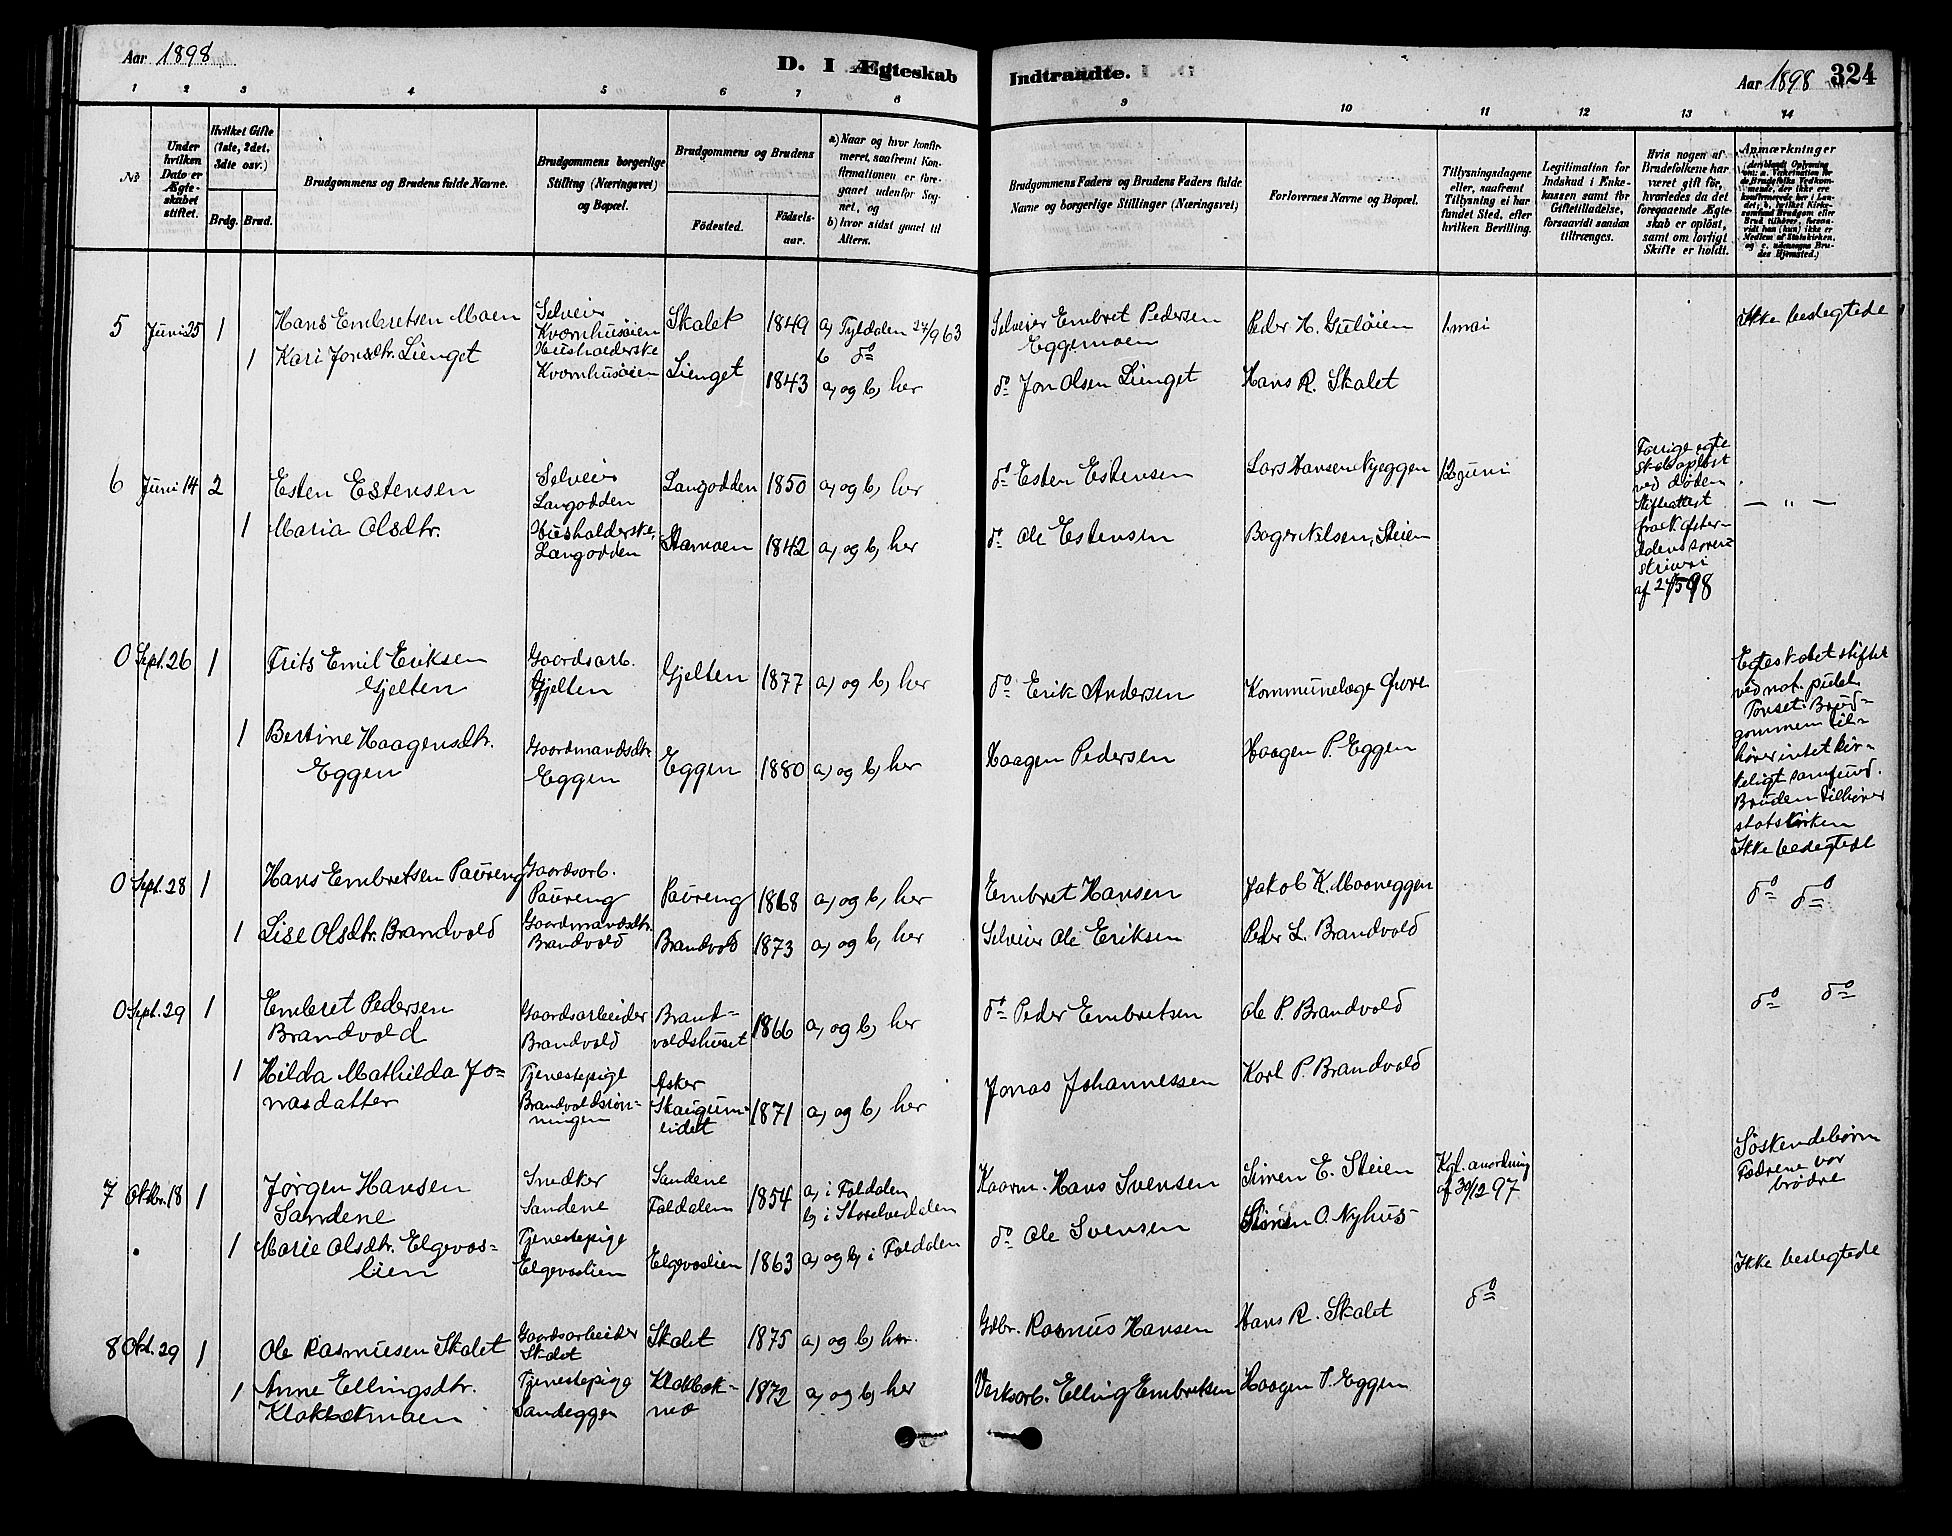 Aar 1898
D. I Ægteskab Indtraadte.
Aar 1898 324
1 2 3 4 5 6 7 8 9 10 11 12 13 14
No
Under hvilken Dato er Ægteskabet stiftet.
Hvilket Gifte (1ste, 2det, 3die osv.)
Brdg. Brud.
Brudgommens og Brudens fulde Navne.
Brudgommens borgerlige Stilling (Næringsvei) og Bopæl.
Brudgommens og Brudens
Födested. Födsels-aar.
a) Naar og hvor konfirmeret, saafremt Konfirmationen er foregaaet udenfor Sognet, og
b) hvor sidst gaaet til Alters.
Brudgommens Faders og Brudens Faders fulde Navne og borgerlige Stillinger (Næringsvei)
Forlovernes Navne og Bopæl.
Tillysningsdagene eller, saafremt Tillysning ei har fundet Sted, efter hvilken Bevilling.
Legitimation for Indskud i Enkekassen samt for Giftetilladelse, forsaavidt saadan tiltrænges.
Hvis nogen af Brudefolkene har været gift för, hvorledes da det foregaaende Ægteskab er oplöst, samt om lovligt Skifte er holdt.
Anmærkninger
5 Juni 25 1 Hans Embretsen Moen Selveier Kvornhusöien Skalet 1849 a, Tyldalen 27/9 63 b do Selveier Embret Pedersen Eggemoen Peder H. Gulöien 1 mai Ikke beslegtede
1 Kari Jonsdtr. Lienget Husholderske Kvornhusöien Lienget 1843 a, og b, her do Jon Olsen Lienget Hans R. Skalet
6 Juni 14 2 Esten Estensen Selveier Langodden Langodden 1850 a, og b, her do Esten Estensen Lars Hansen Nyeggen 12 juni Forrige egteskab oplöst ved döden. Skifteattest fra N. Österdalens sorenskriveri af 27/5 98 — „ —
1 Maria Olsdtr. Husholderske, Langodden Stamoen 1842 a, og b, her do Ole Estensen Boger Nilsen, Steien
0 Sept. 26 1 Frits Emil Eriksen Gjelten Gaardsarb. Gjelten Gjelten 1877 a, og b, her do Erik Andersen Kommunelæge Qvore Egteskabet stiftet ved not. publ. Tönset. Brudgommen tilhörer intet kirkeligt samfund. Bruden tilhörer statskirken Ikke beslegtede
1 Bertine Haagensdtr. Eggen Gaardmandsdtr. Eggen Eggen 1880 a, og b, her Haagen Pedersen Haagen P. Eggen
0 Sept. 28 1 Hans Embretsen Paureng Gaardsarb. Paureng Paureng 1868 a, og b, her Embret Hansen Jakob K. Moaneggen do do
1 Lise Olsdtr. Brandvold Gaardmandsdtr. Brandvold Brandvold 1873 a, og b, her Selveier Ole Eriksen Peder L. Brandvold
0 Sept. 29 1 Embret Pedersen Brandvold Gaardsarbeider Brandvold Brandvoldshuset 1866 a, og b, her do Peder Embretsen Ole P. Brandvold do do
1 Hilda Mathilda Jonasdatter Tjenestepige Brandvoldsrönningen Asker Skaugumeidet 1871 a, og b, her Jonas Johannessen Karl P. Brandvold
7 Oktbr. 18 1 Jørgen Hansen Sandene Snedker Sandene Sandene Foldalen 1854 a, i Foldalen b, i Storelvedalen Kaarm. Hans Svensen Simen E. Steien Kgl. anordning af 30/12 97 Söskendebörn Fædrene var brödre
1 Marie Olsdtr. Elgevaslien Tjenestepige Elgevaslien Elgevaslien 1863 a, og b, i Foldalen do Ole Svensen Simen O. Nyhus
8 Okt. 29 1 Ole Rasmusen Skalet Gaardsarbeider Skalet Skalet 1875 a, og b, her. Gdbr. Rasmus Hansen Hans R. Skalet do Ikke beslegtede
1 Anne Ellingsdtr. Klokbækmoen Tjenestepige Sandeggen Klokbækmo 1872 a, og b, her Verksarb. Elling Embretsen Haagen P. Eggen